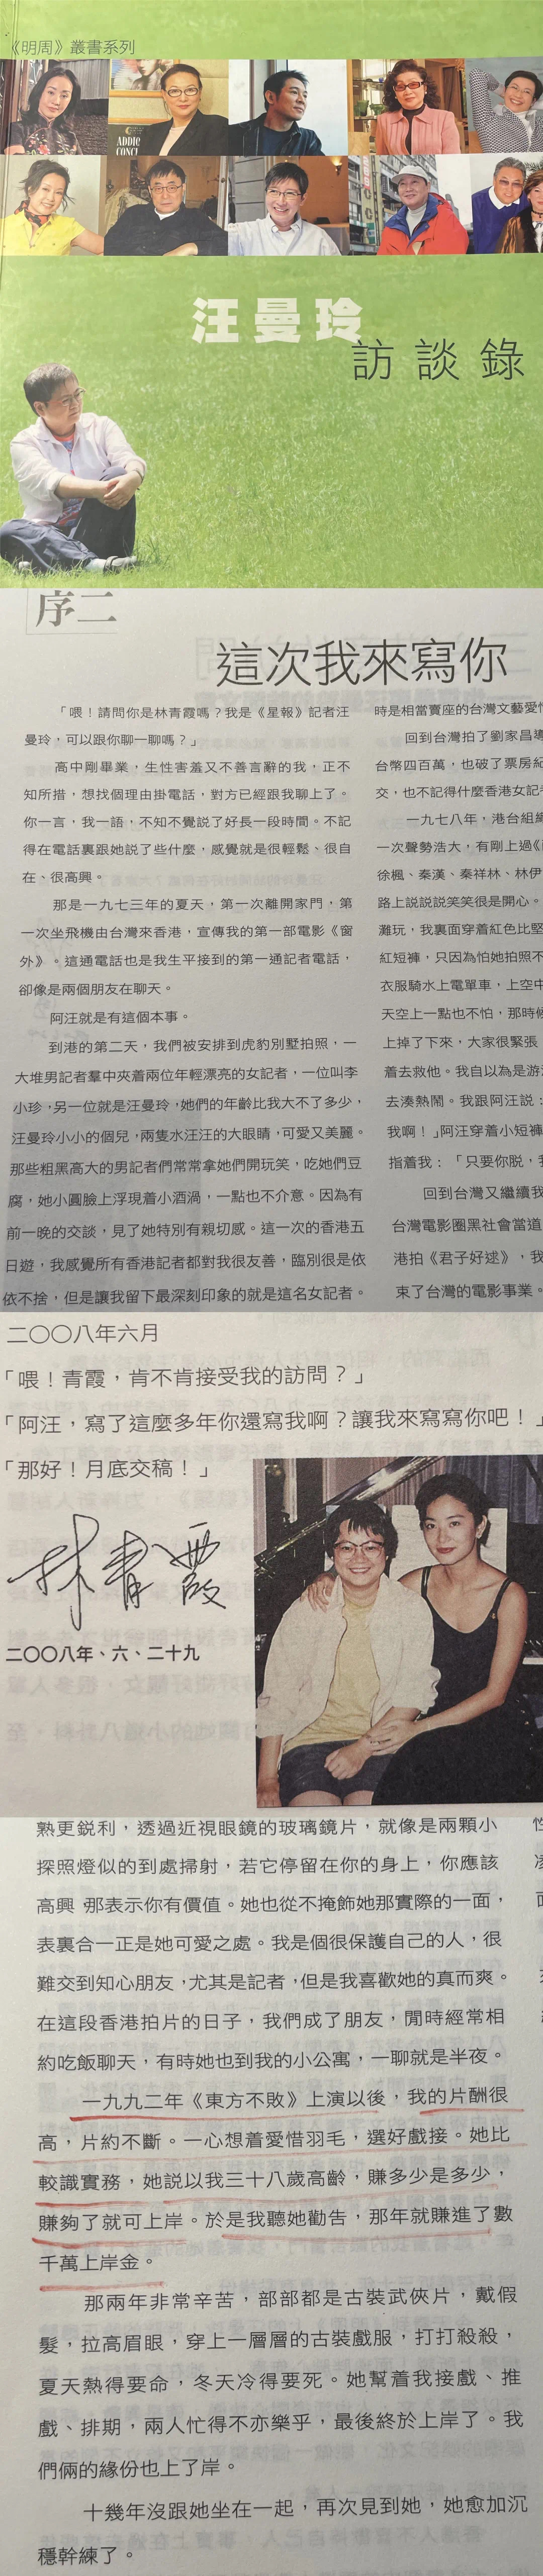 《明周》叢書系列
ADDIE
CONCI
汪曼玲
訪談錄
序二
這次我來寫你
「喂！請問你是林青霞嗎？我是《星報》記者汪
曼玲，可以跟你聊一聊嗎？」
高中剛畢業，生性害羞又不善言辭的我，正不
知所措，想找個理由掛電話，對方已經跟我聊上了。
你一言，我一語，不知不覺說了好長一段時間。不記
得在電話裏跟她說了些什麼，感覺就是很輕鬆、很自
在、很高興。
那是一九七三年的夏天，第一次離開家門，第
一次坐飛機由台灣來香港，宣傳我的第一部電影《窗
外》。這通電話也是我生平接到的第一通記者電話，
卻像是兩個朋友在聊天。
阿汪就是有這個本事。
到港的第二天，我們被安排到虎豹別墅拍照，一
大堆男記者羣中夾着兩位年輕漂亮的女記者，一位叫李
小珍，另一位就是汪曼玲，她們的年齡比我大不了多少，
汪曼玲小小的個兒，兩隻水汪汪的大眼睛，可愛又美麗。
那些粗黑高大的男記者們常常拿她們開玩笑，吃她們豆
腐，她小圓臉上浮現着小酒渦，一點也不介意。因為有
前一晚的交談，見了她特別有親切感。這一次的香港五
日遊，我感覺所有香港記者都對我很友善，臨別很是依
依不捨，但是讓我留下最深刻印象的就是這名女記者。
時是相當賣座的台灣文藝愛情
回到台灣拍了劉家昌導
台幣四百萬，也破了票房紀
交，也不記得什麼香港女記者
一九七八年，港台組織
一次聲勢浩大，有剛上過《
徐楓、秦漢、秦祥林、林伊
路上説説笑笑很是開心。
灘玩，我裏面穿着紅色比堅
紅短褲，只因為怕她拍照不
衣服騎水上電單車，上空中
天空上一點也不怕，那時候
上掉了下來，大家很緊張
着去救他。我自以為是游泳
去湊熱鬧。我跟阿汪説：
我啊！」阿汪穿着小短褲
指着我：「只要你脱，我
回到台灣又繼續我
台灣電影圈黑社會當道
港拍《君子好逑》，我
束了台灣的電影事業。
二〇〇八年六月
「喂！青霞，肯不肯接受我的訪問？」
「阿汪，寫了這麼多年你還寫我啊？讓我來寫寫你吧！」
「那好！月底交稿！」
林青霞
二〇〇八年、六、二十九
熟更鋭利，透過近視眼鏡的玻璃鏡片，就像是兩顆小
探照燈似的到處掃射，若它停留在你的身上，你應該
高興，那表示你有價值。她也從不掩飾她那實際的一面，
表裏合一正是她可愛之處。我是個很保護自己的人，很
難交到知心朋友，尤其是記者，但是我喜歡她的真而爽。
在這段香港拍片的日子，我們成了朋友，閒時經常相
約吃飯聊天，有時她也到我的小公寓，一聊就是半夜。
一九九二年《東方不敗》上演以後，我的片酬很
高，片約不斷。一心想着愛惜羽毛，選好戲接。她比
較識實務，她説以我三十八歲高齡，賺多少是多少，
賺夠了就可上岸。於是我聽她勸告，那年就賺進了數
千萬上岸金。
那兩年非常辛苦，部部都是古裝武俠片，戴假
髮，拉高眉眼，穿上一層層的古裝戲服，打打殺殺，
夏天熱得要命，冬天冷得要死。她幫着我接戲、推
戲、排期，兩人忙得不亦樂乎，最後終於上岸了。我
們倆的緣份也上了岸。
十幾年沒跟她坐在一起，再次見到她，她愈加沉
穩幹練了。